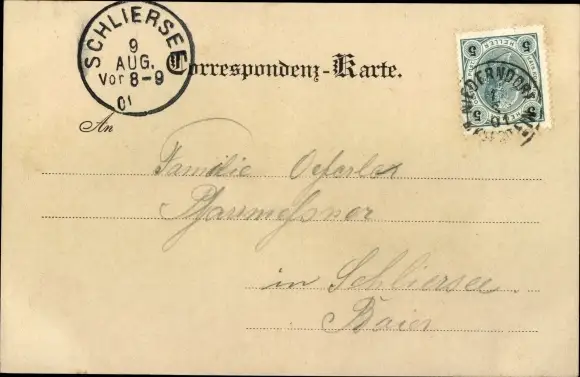 SCHLIERSEE
9
AUG.
Vor 8-9
01
Correspondenz-Karte.
5 HELLER 5
5 5
NIEDERNDORF
An
Familie
Pfarrmessner
in Schliersee
Baiern